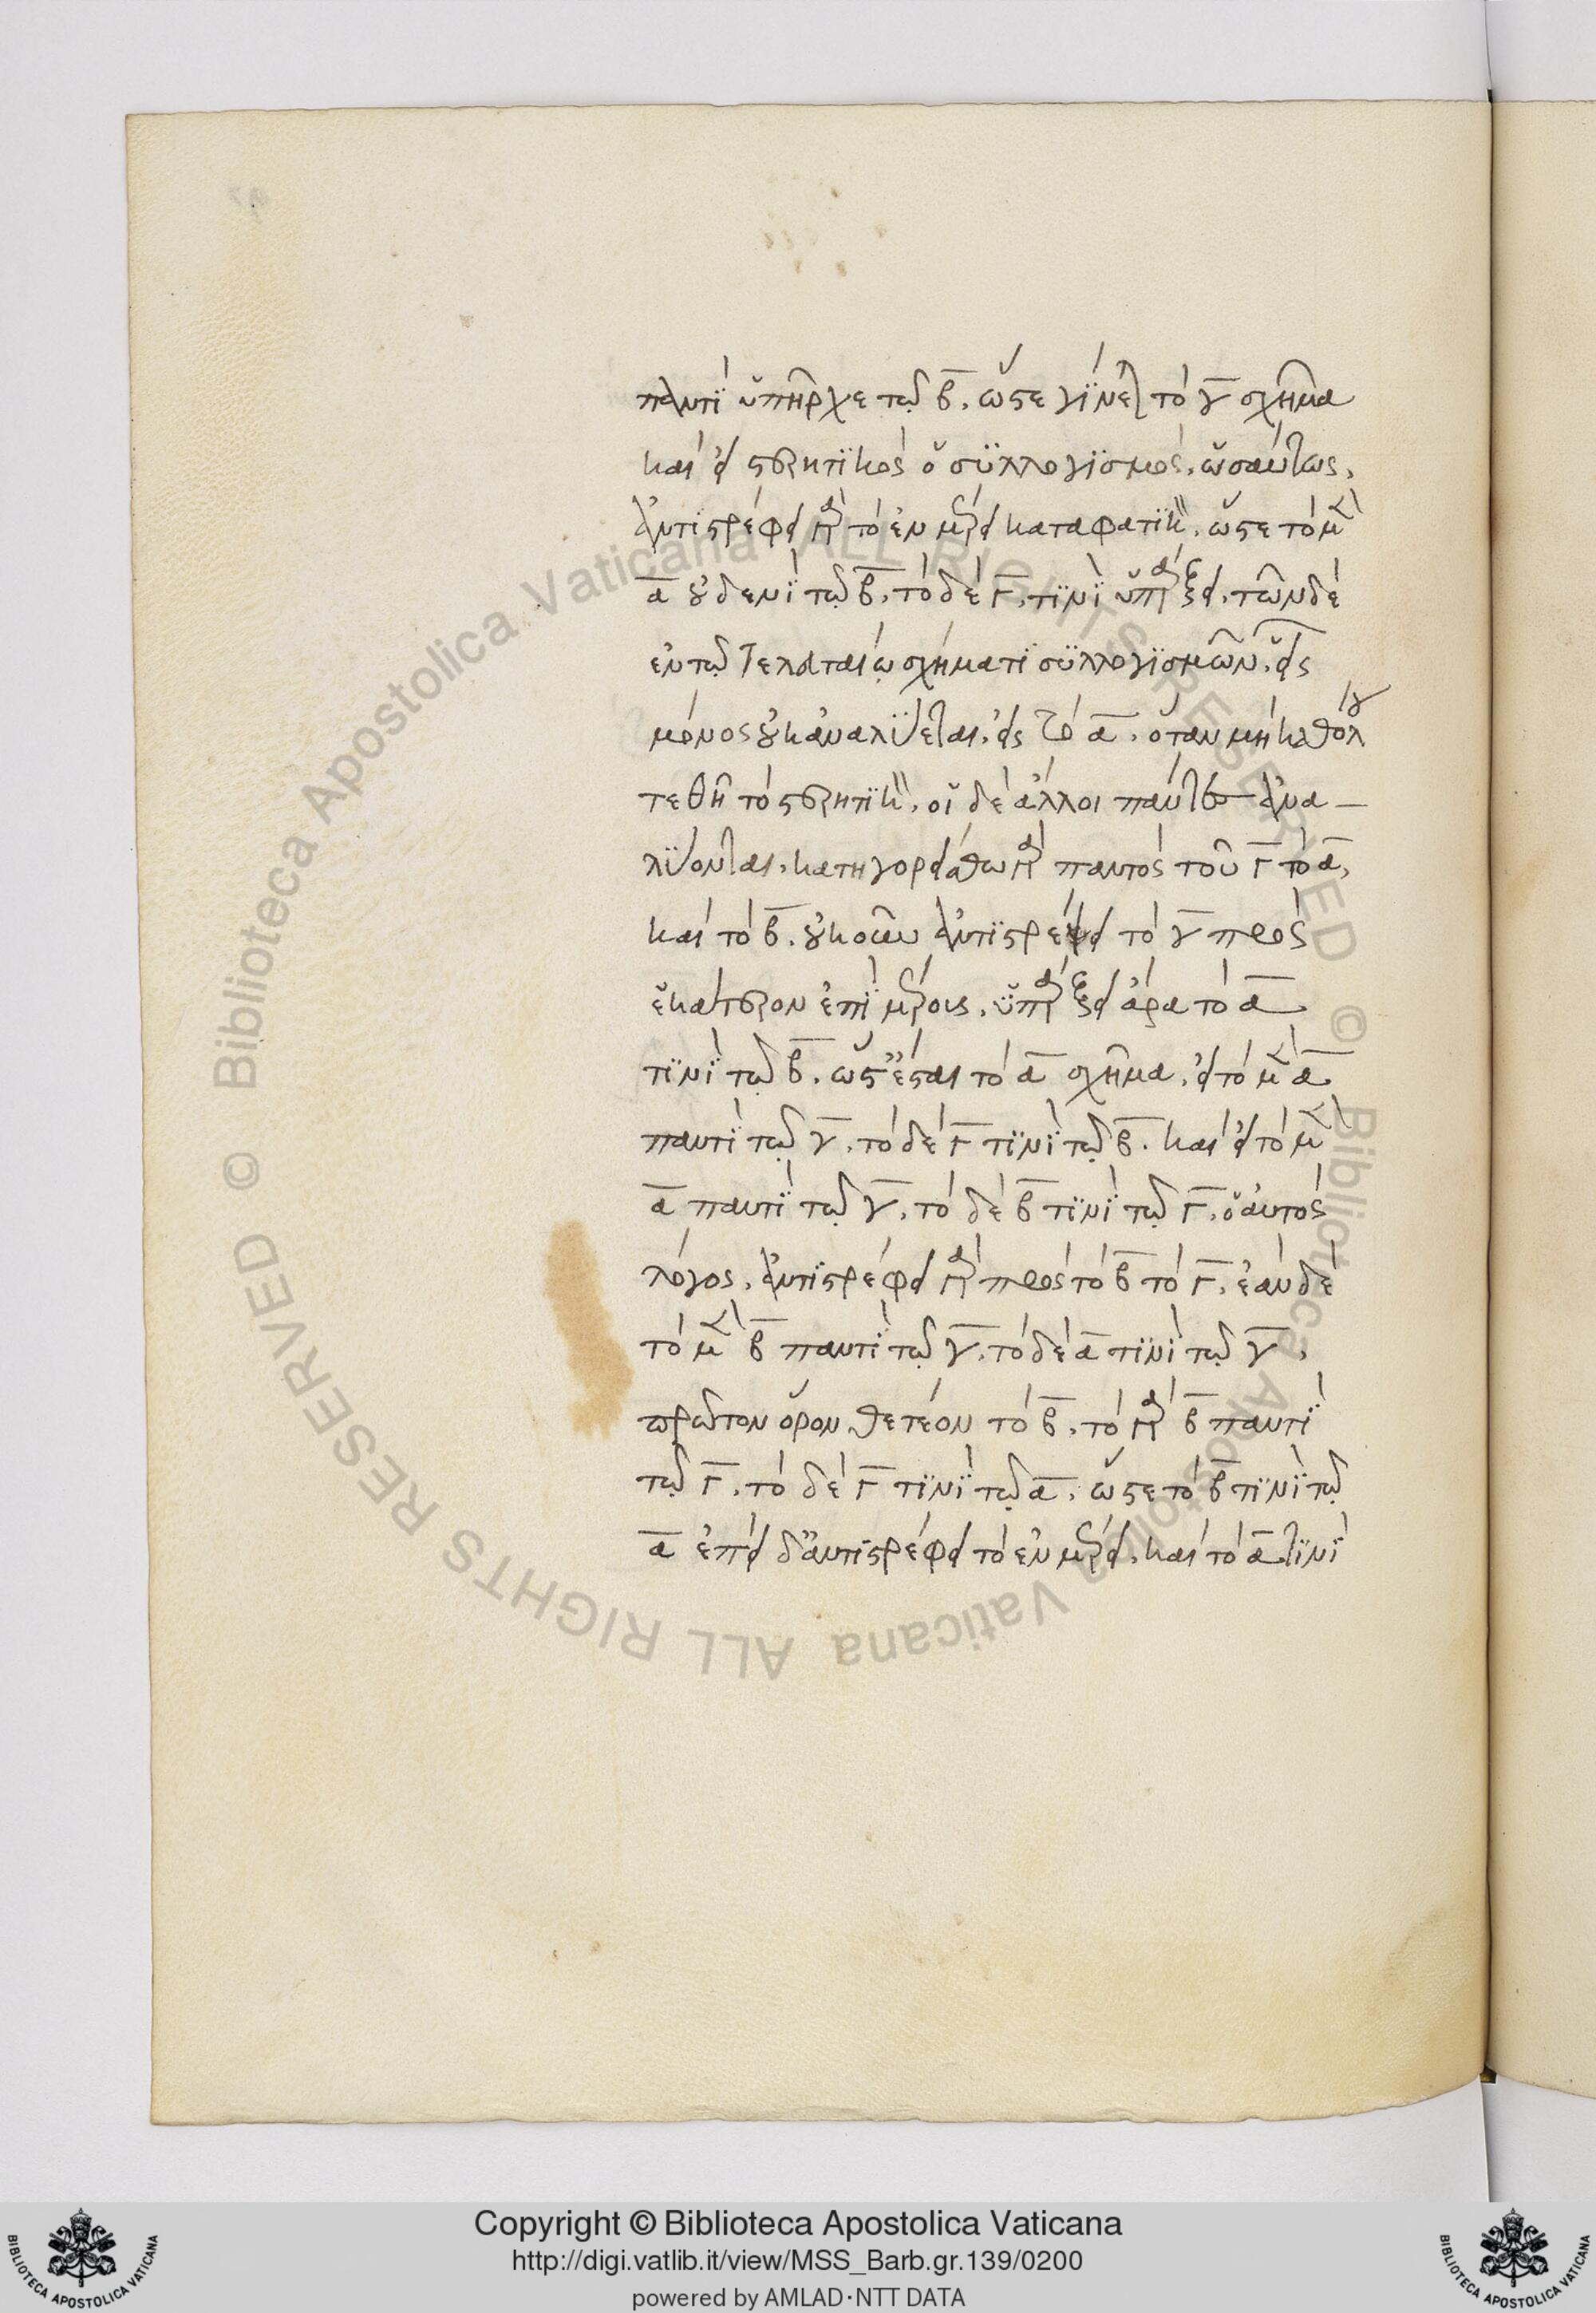 παντὶ ὑπῆρχε τῷ β̅. ὥστε γίνεται τὸ γ̅ σχῆμα
καὶ εἰ στερητικὸς ὁ συλλογισμός. ὡσαύτως,
ἀντιστρέφει γὰρ τὸ ἐν μέρει καταφατικόν. ὥστε τὸ μὲν
α̅ οὐδενὶ τῷ β̅, τὸ δὲ Γ̅, τινὶ ὑπάρξει. τῶν δὲ
ἐν τῷ τελευταίῳ σχήματι συλλογισμῶν, εἷς
μόνος οὐκ ἀναλύεται, εἰς τὸ α̅, ὅταν μὴ καθόλου
τεθῇ τὸ στερητικόν, οἱ δὲ ἄλλοι πάντες ἀνα-
λύονται. κατηγορείσθω γὰρ παντὸς τοῦ Γ̅ τὸ α̅,
καὶ τὸ β̅. οὐκοῦν ἀντιστρέψει τὸ γ̅ πρὸς
ἑκάτερον ἐπὶ μέρους. ὑπάρξει ἄρα τὸ α̅
τινὶ τῷ β̅. ὥστ' ἔσται τὸ α̅ σχῆμα, εἰ τὸ μὲν α̅
παντὶ τῷ γ̅, τὸ δὲ Γ̅ τινὶ τῷ β̅. καὶ εἰ τὸ μὲν
α̅ παντὶ τῷ γ̅, τὸ δὲ β̅ τινὶ τῷ Γ̅, ὁ αὐτὸς
λόγος. ἀντιστρέφει γὰρ πρὸς τὸ β̅ τὸ Γ̅. ἐὰν δὲ
τὸ μὲν β̅ παντὶ τῷ γ̅. τὸ δὲ α̅ τινὶ τῷ γ̅,
πρῶτον ὅρον θετέον τὸ β̅. τὸ γὰρ β̅ παντὶ
τῷ Γ̅. τὸ δὲ Γ̅ τινὶ τῷ α̅. ὥστε τὸ β̅ τινὶ τῷ
α̅ ἐπεὶ δ' ἀντιστρέφει τὸ ἐν μέρει. καὶ τὸ α̅ τινὶ
Copyright © Biblioteca Apostolica Vaticana
http://digi.vatlib.it/view/MSS_Barb.gr.139/0200
powered by AMLAD·NTT DATA